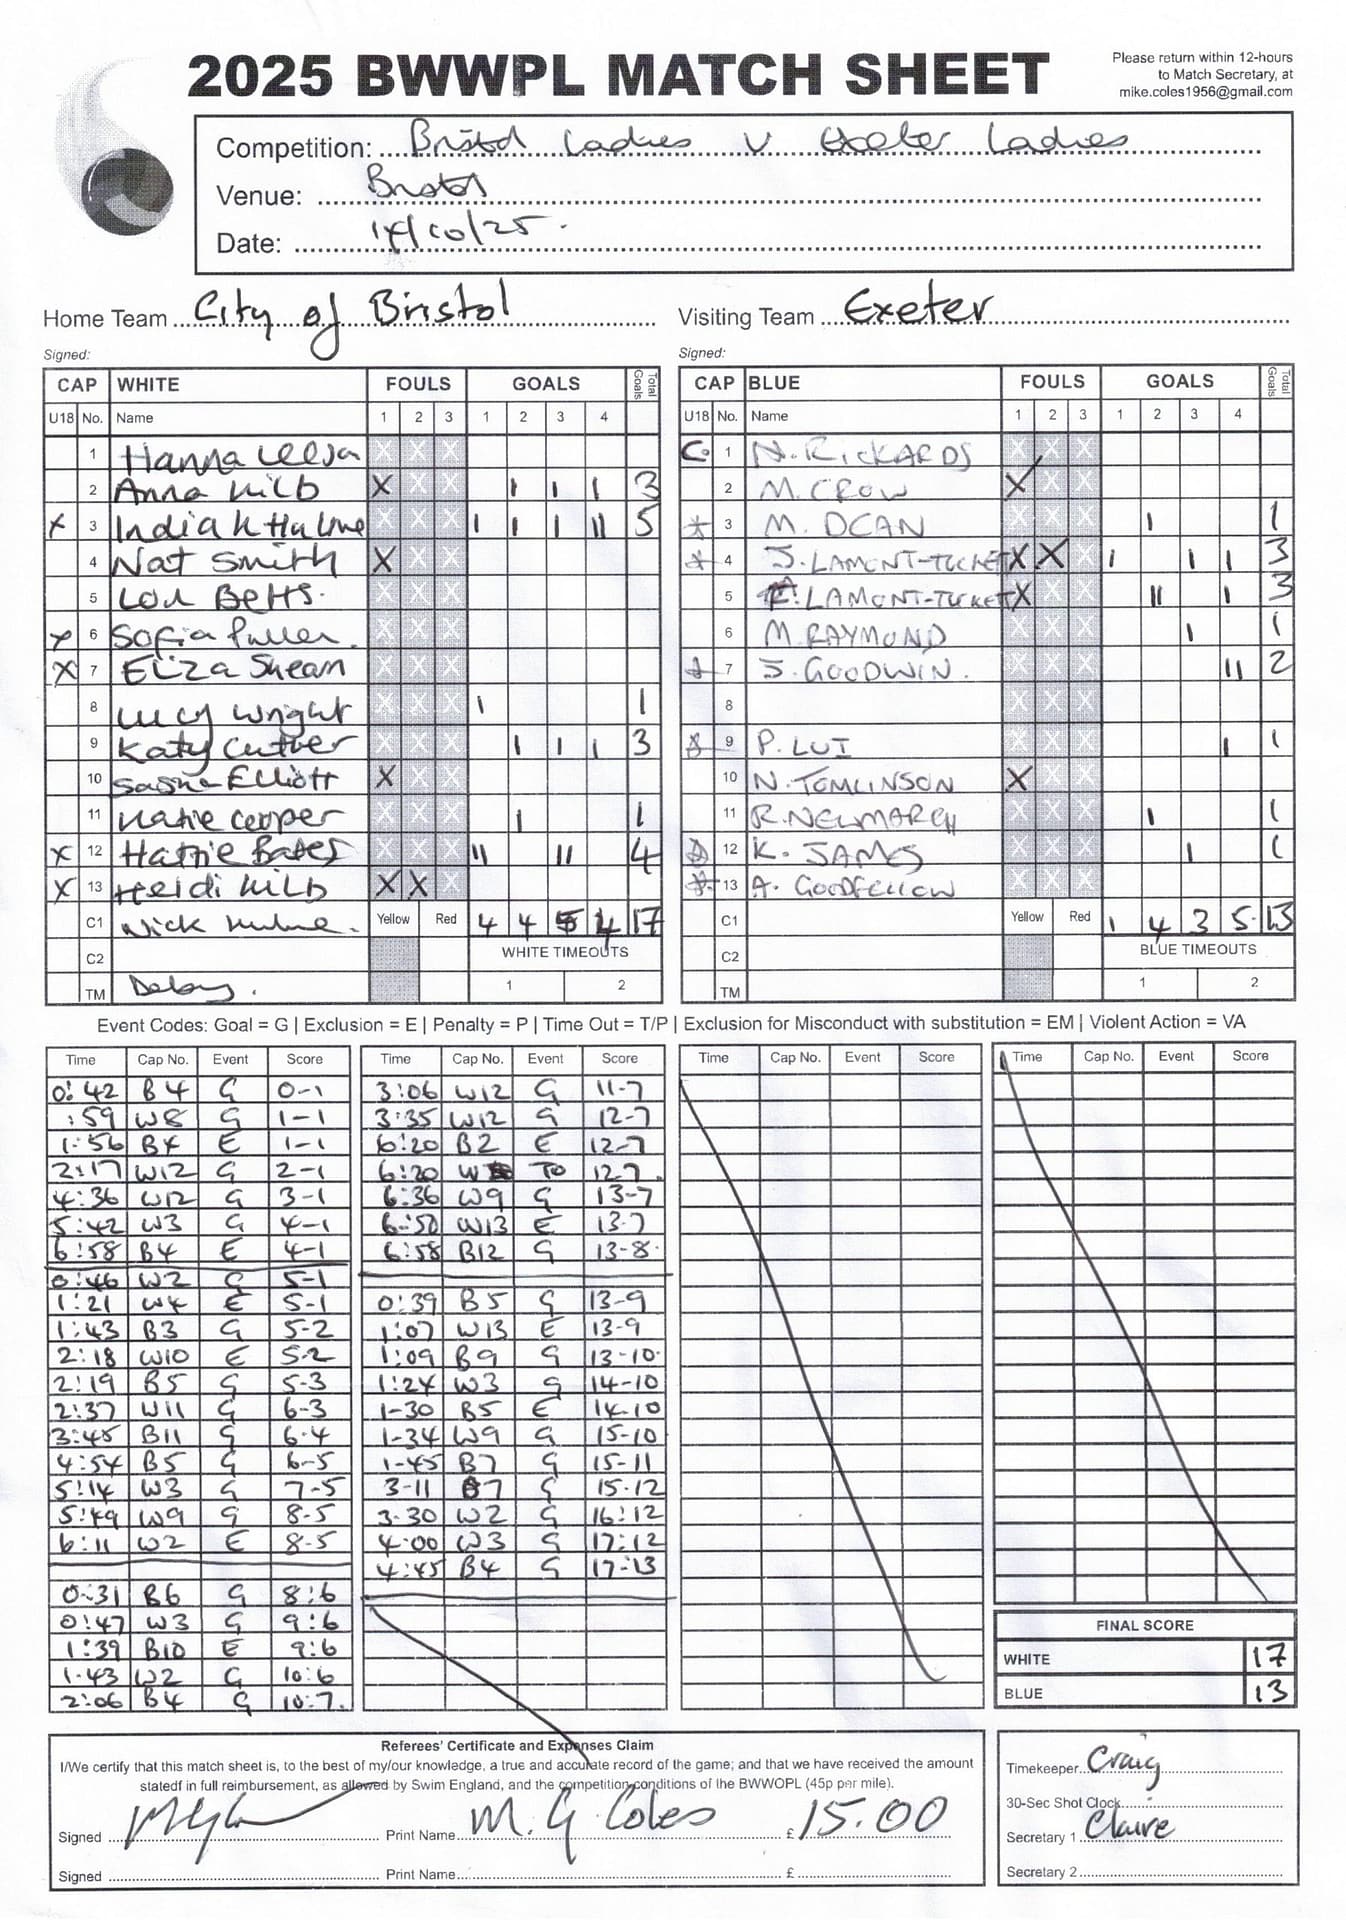 2025 BWWPL MATCH SHEET
Please return within 12-hours
to Match Secretary, at
mike.coles1956@gmail.com
Competition: Bristol Ladies V Exeter Ladies
Venue: Bristol
Date: /10/25.
Home Team City of Bristol
Visiting Team Exeter
Signed:
Signed:
CAP WHITE FOULS GOALS Total Goals
U18 No. Name 1 2 3 1 2 3 4
1 Hanna X X X
2 Anna Kilb X X X | | | 3
X 3 India X X X | | | || 5
4 Nat Smith X X X
5 Lou Betts. X X X
X 6 Sofia Pullen. X X X
X 7 Eliza Shean X X X
8 Lucy Wright X X X | 1
9 Katy Cutler X X X | | | 3
10 Sasha Elliott X X X
11 Katie Cooper X X X | 1
X 12 Hattie Bates X X X || || 4
X 13 Heidi Kilb X X X
C1 Nick Hulme. Yellow Red 4 4 5 4 17
C2 WHITE TIMEOUTS
TM Debay. 1 2
CAP BLUE FOULS GOALS Total Goals
U18 No. Name 1 2 3 1 2 3 4
C. 1 N. RICKARDS X X X
2 M. CROW X X X
* 3 M. DEAN X X X | 1
* 4 J. LAMONT-TUCKETT X X X | | | 3
5 LAMONT-TUCKETT X X X || | 3
6 M. RAYMOND X X X | 1
* 7 J. GOODWIN. X X X || 2
8 X X X
* 9 P. LUI X X X | 1
10 N. TOMLINSON X X X
11 R. NEWMARCH X X X | 1
* 12 K. JAMES X X X | 1
* 13 A. GOODFELLOW X X X
C1 Yellow Red 1 4 3 5 13
C2 BLUE TIMEOUTS
TM 1 2
Event Codes: Goal = G | Exclusion = E | Penalty = P | Time Out = T/P | Exclusion for Misconduct with substitution = EM | Violent Action = VA
Time Cap No. Event Score
0:42 B4 G 0-1
:59 W8 G 1-1
1:56 B4 E 1-1
2:17 W12 G 2-1
4:36 W12 G 3-1
5:42 W3 G 4-1
6:58 B4 E 4-1
0:46 W2 G 5-1
1:21 W4 E 5-1
1:43 B3 G 5-2
2:18 W10 E 5-2
2:19 B5 G 5-3
2:37 W11 G 6-3
3:45 B11 G 6-4
4:54 B5 G 6-5
5:14 W3 G 7-5
5:49 W9 G 8-5
6:11 W2 E 8-5
0:31 B6 G 8:6
0:47 W3 G 9:6
1:39 B10 E 9:6
1-43 W2 G 10:6
2:06 B4 G 10-7.
Time Cap No. Event Score
3:06 W12 G 11-7
3:35 W12 G 12-7
6:20 B2 E 12-7
6:20 W TO 12.7.
6:36 W9 G 13-7
6:50 W13 E 13-7
6:58 B12 G 13-8.
0:39 B5 G 13-9
1:07 W13 E 13-9
1:09 B9 G 13-10.
1:24 W3 G 14-10
1-30 B5 E 14-10
1-34 W9 G 15-10
1-45 B7 G 15-11
3-11 B7 G 15.12
3.30 W2 G 16:12
4:00 W3 G 17:12
4:45 B4 G 17-13
Time Cap No. Event Score
Time Cap No. Event Score
FINAL SCORE
WHITE 17
BLUE 13
Referees' Certificate and Expenses Claim
I/We certify that this match sheet is, to the best of my/our knowledge, a true and accurate record of the game; and that we have received the amount
statedf in full reimbursement, as allowed by Swim England, and the competition conditions of the BWWOPL (45p per mile).
Signed Print Name M. G. Coles £ 15.00
Signed Print Name £
Timekeeper Craig
30-Sec Shot Clock
Secretary 1 Claire
Secretary 2